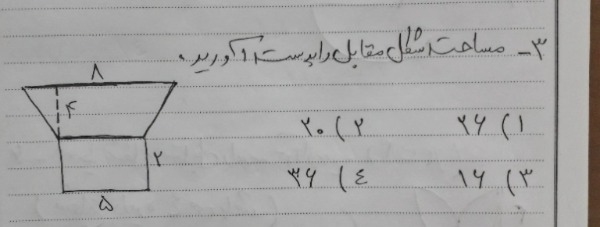 ۳- مساحت شکل مقابل را بدست آورید.
۸
۴
۲
۵
۱) ۲۶ ۲) ۲۰
۳) ۱۶ ٤) ۳۶